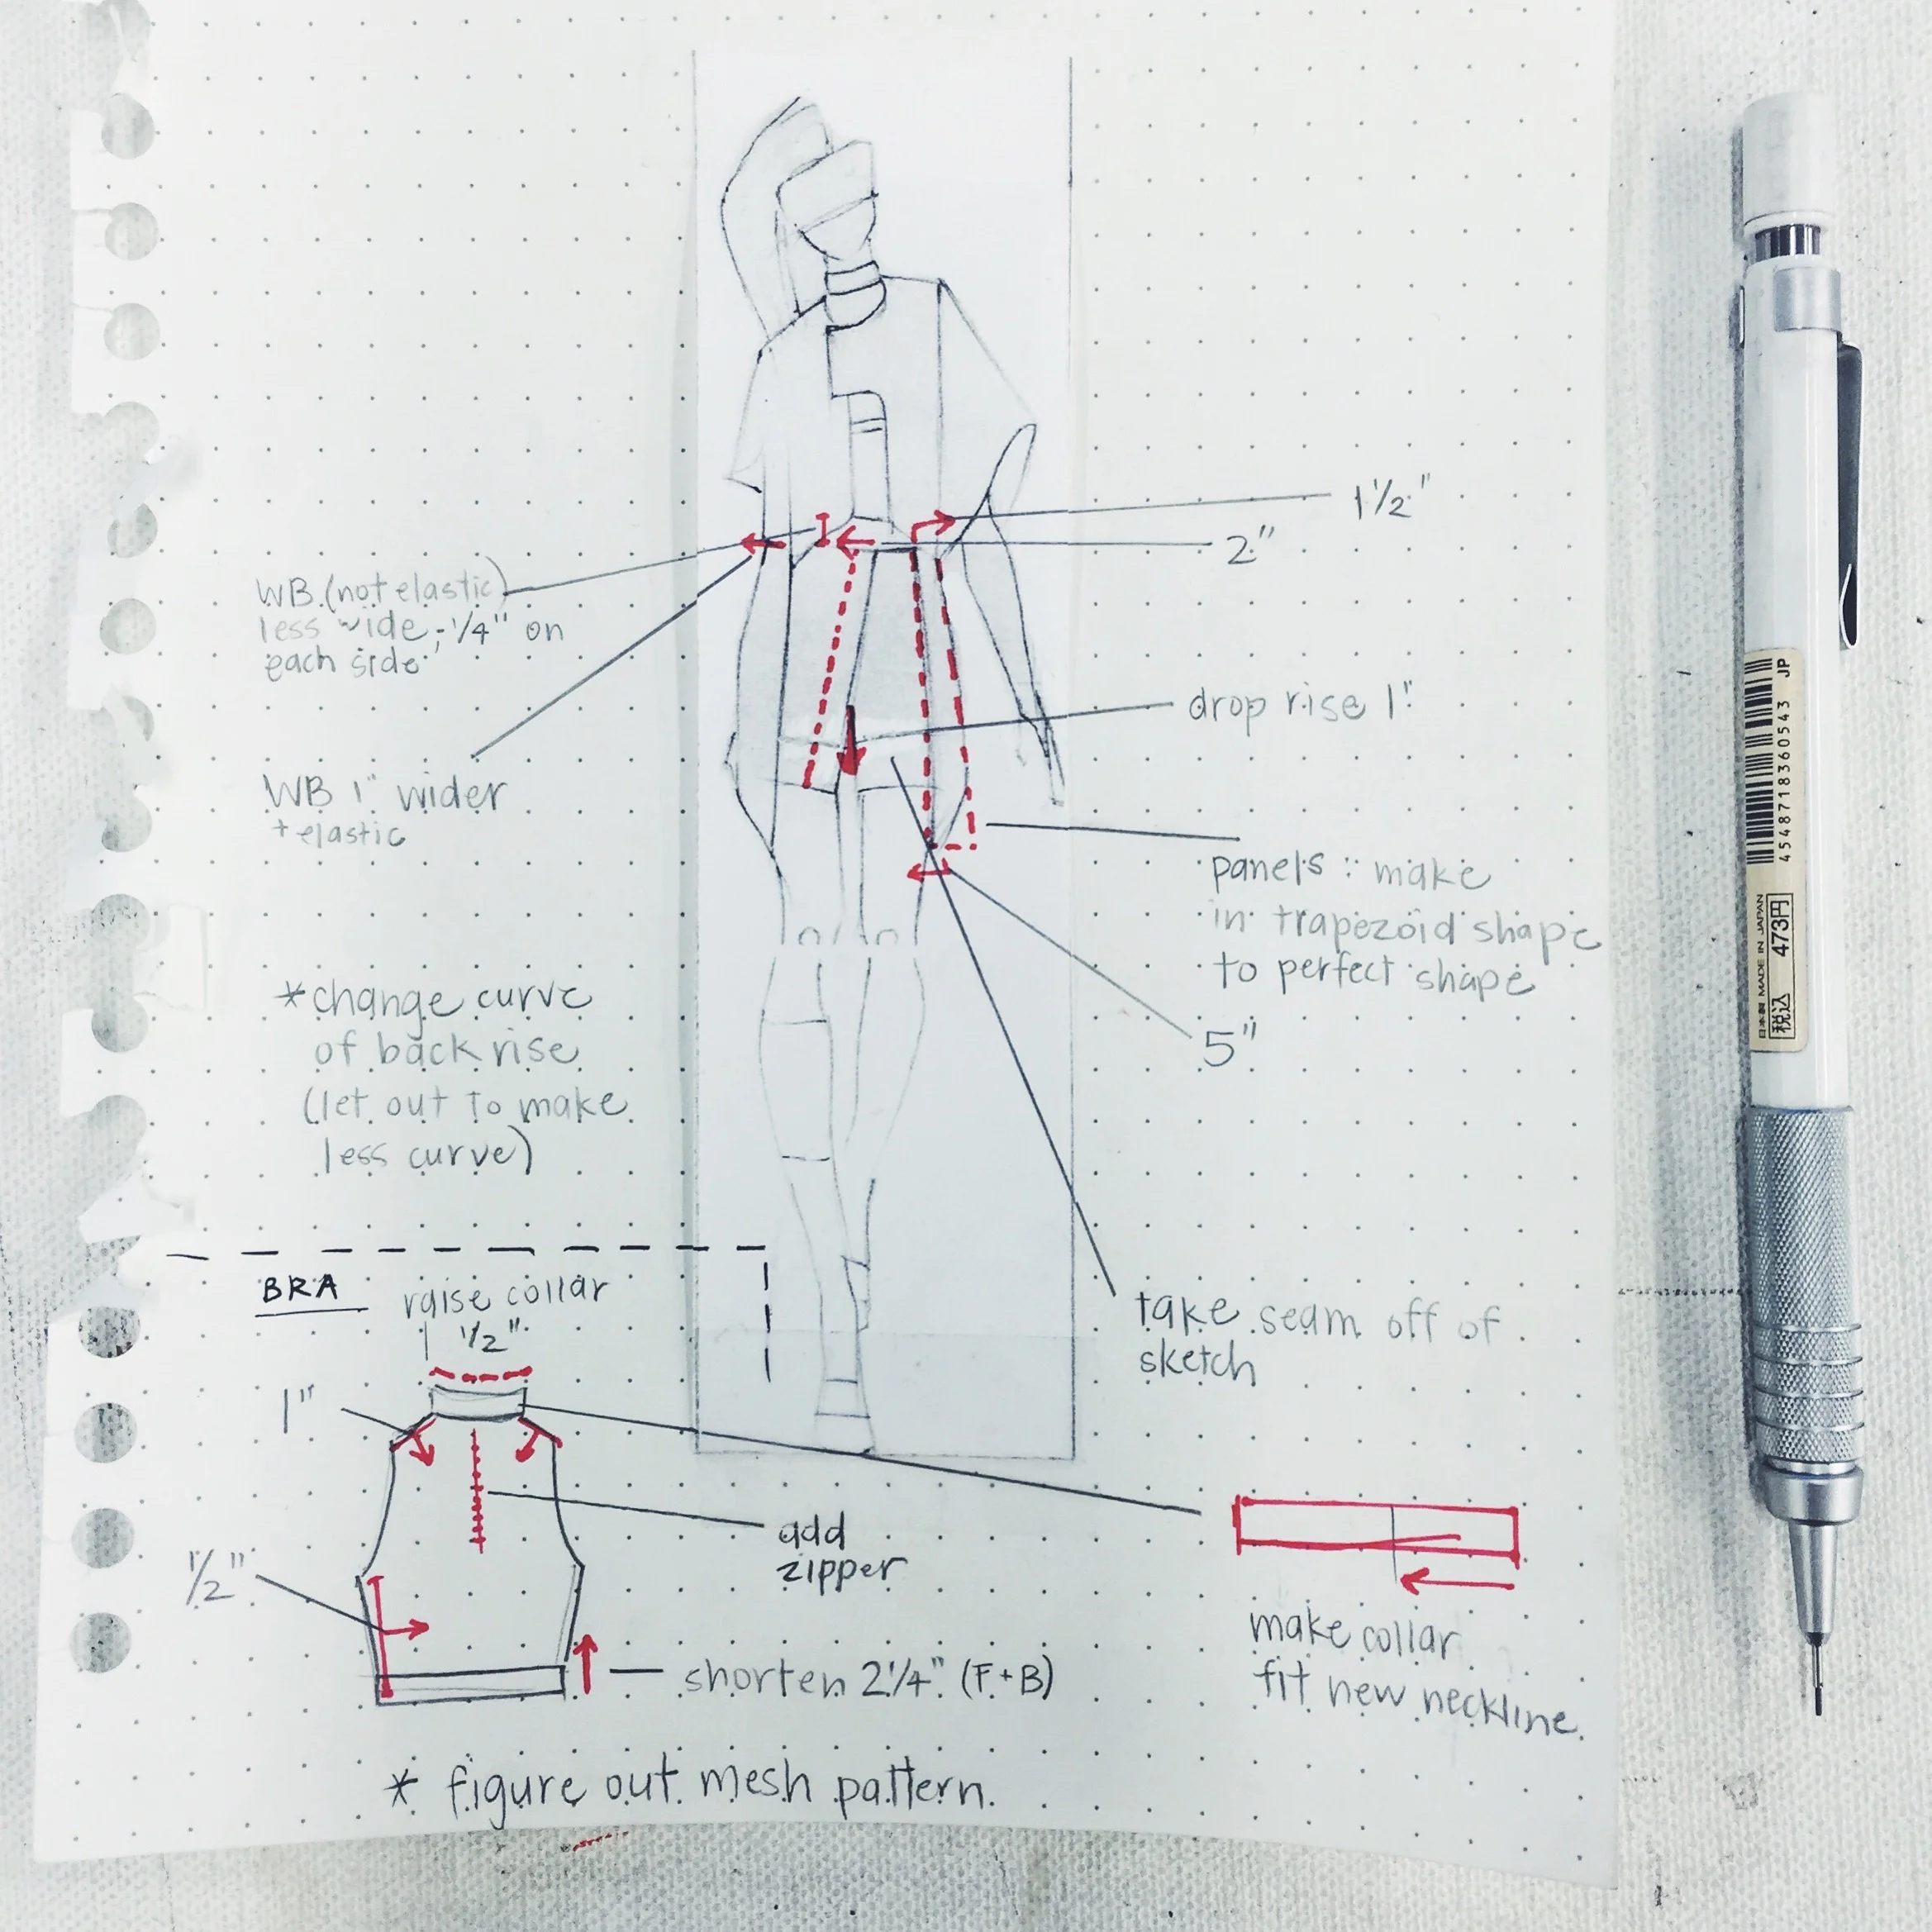 1 1/2"
2"
WB (not elastic)
less wide, 1/4" on
each side
drop rise 1"
WB 1" wider
+ elastic
panels : make
in trapezoid shape
to perfect shape
5"
*change curve
of back rise
(let out to make
less curve)
take seam off of
sketch
BRA
raise collar
1/2"
1"
add
zipper
1/2"
shorten 2 1/4" (F+B)
make collar
fit new neckline.
* figure out mesh pattern.
4548718360543 JP
日本製 MADE IN JAPAN
税込 473円